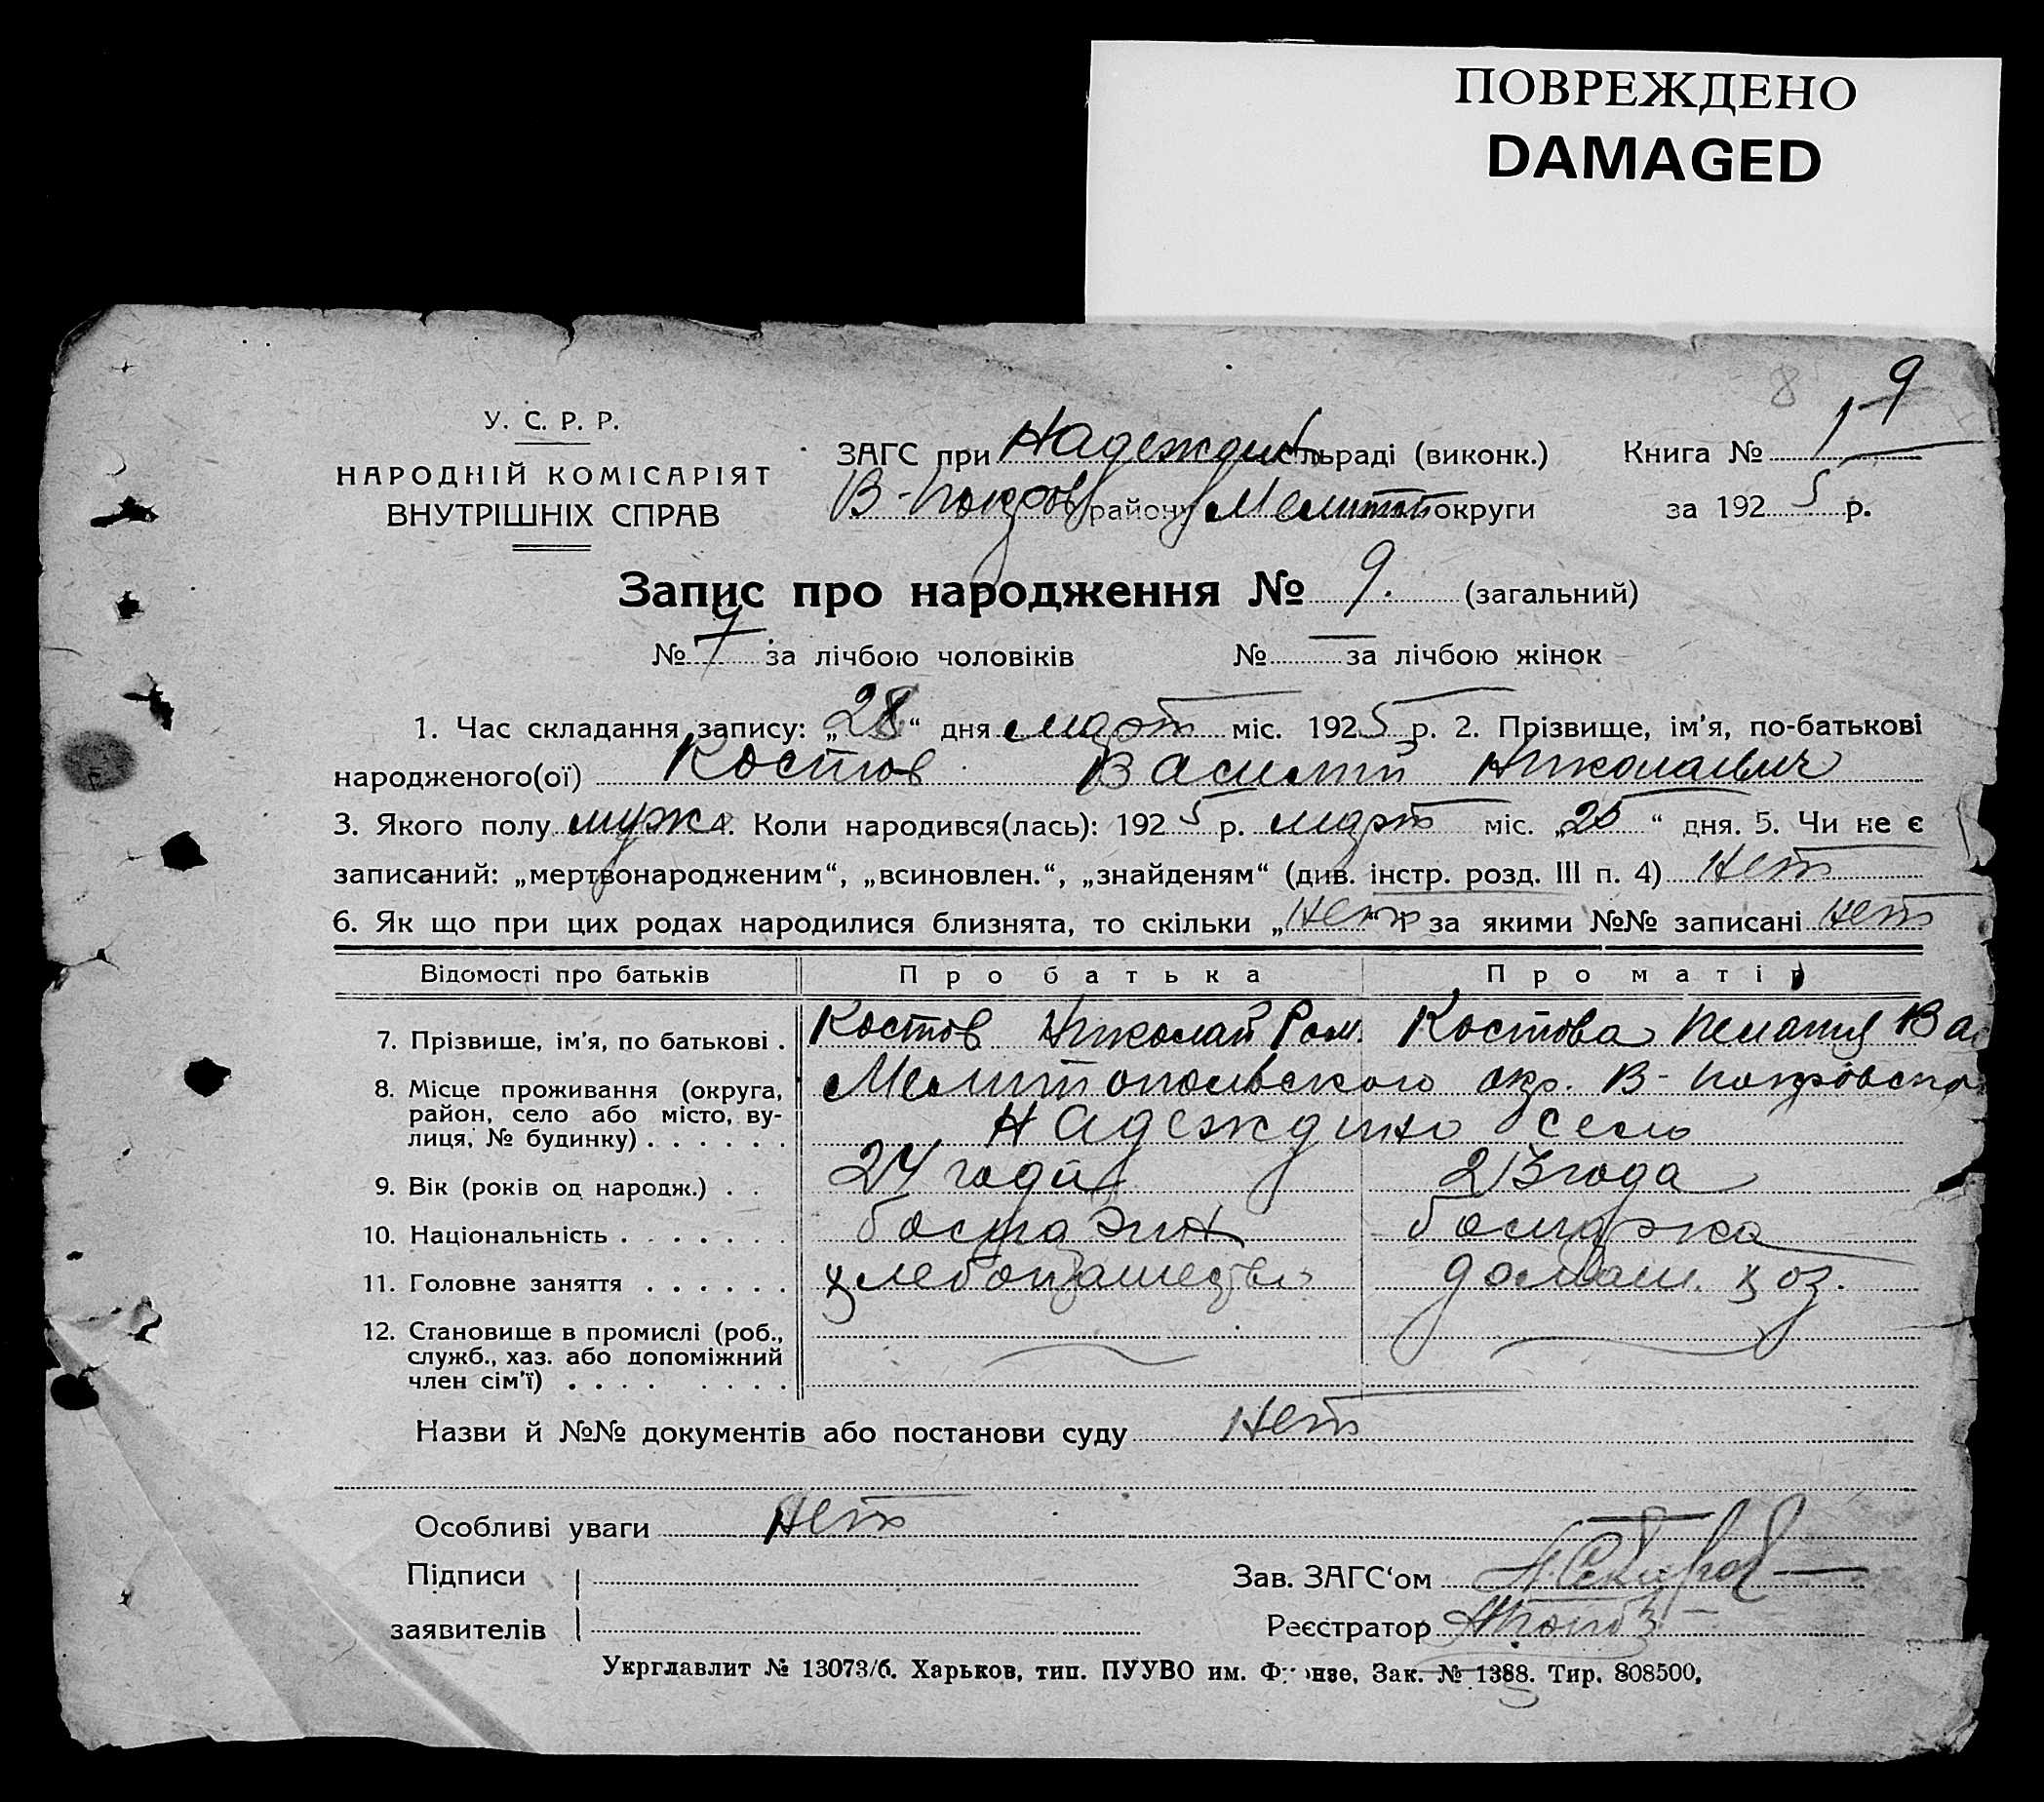 ПОВРЕЖДЕНО
DAMAGED
8
9
У. С. Р. Р.
НАРОДНІЙ КОМІСАРІЯТ
ВНУТРІШНІХ СПРАВ
ЗАГС при Надеждин сільраді (виконк.) Книга № 1
В-Покров району Мелитоп округи за 1925 р.
Запис про народження № 9. (загальний)
№ 7 за лічбою чоловіків № — за лічбою жінок
1. Час складання запису: „28“ дня март міс. 1925 р. 2. Прізвище, ім'я, по-батькові
народженого(ої) Костов Василий Николаевич
3. Якого полу муж 4. Коли народився(лась): 1925 р. март міс. „25“ дня. 5. Чи не є
записаний: „мертвонародженим“, „всиновлен.“, „знайденям“ (див. інстр. розд. III п. 4) Нет
6. Як що при цих родах народилися близнята, то скільки „Нет“ за якими №№ записані Нет
Відомості про батьків Про батька Про матір
7. Прізвище, ім'я, по батькові . Костов Николай Ром. Костова Пелагия Вас
8. Місце проживання (округа, район, село або місто, вулиця, № будинку) . . . . . . Мелитопольского окр. В-Покровско
Надеждино село
9. Вік (років од народж.) . . 24 года 23 года
10. Національність . . . . . . . болгарин болгарка
11. Головне заняття . . . . . . хлебопашество домаш. хоз.
12. Становище в промислі (роб., служб., хаз. або допоміжний член сім'ї) . . . . . . . .
Назви й №№ документів або постанови суду Нет
Особливі уваги Нет
Підписи заявителів
Зав. ЗАГС'ом
Реєстратор
Укрглавлит № 13073/б. Харьков, тип. ПУУВО им. Фрунзе, Зак. № 1388. Тир. 808500,